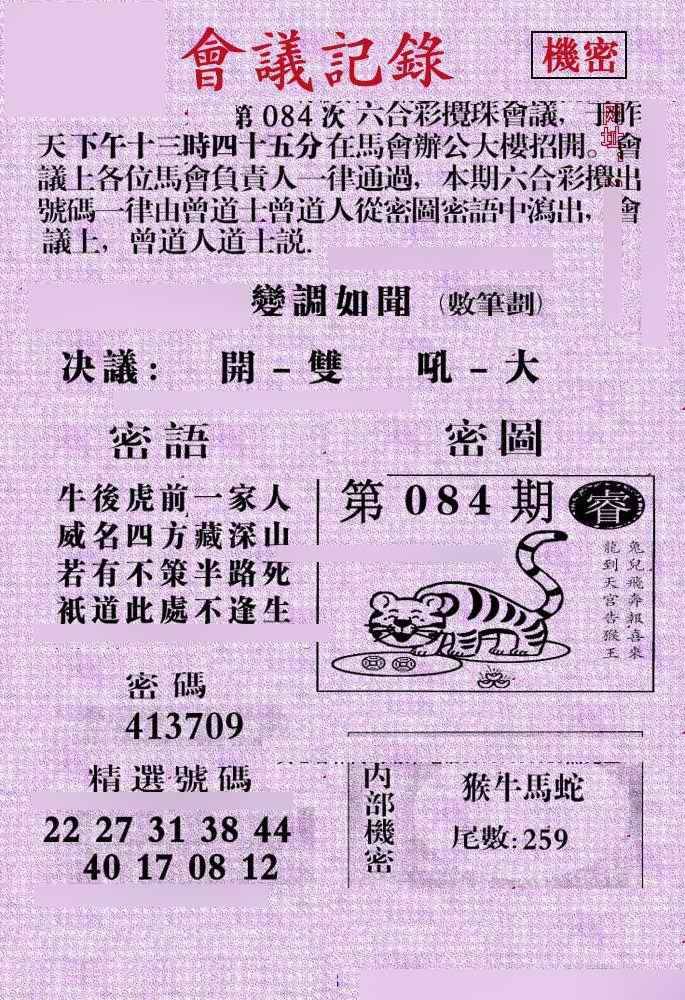 會議記錄
機密
第 084 次 六合彩攪珠會議，于昨
网址:
天下午十三時四十五分在馬會辦公大樓招開。會
議上各位馬會負責人一律通過，本期六合彩攪出
號碼一律由曾道士曾道人從密圖密語中瀉出，會
議上，曾道人道士説.
變調如聞 (數筆劃)
决議: 開－雙 吼－大
密語
牛後虎前一家人
威名四方藏深山
若有不策半路死
祇道此處不逢生
密圖
第 084 期
睿
兔兒飛奔報喜來
龍到天宫告猴王
密碼
413709
精選號碼
22 27 31 38 44
40 17 08 12
内部機密
猴牛馬蛇
尾數:259